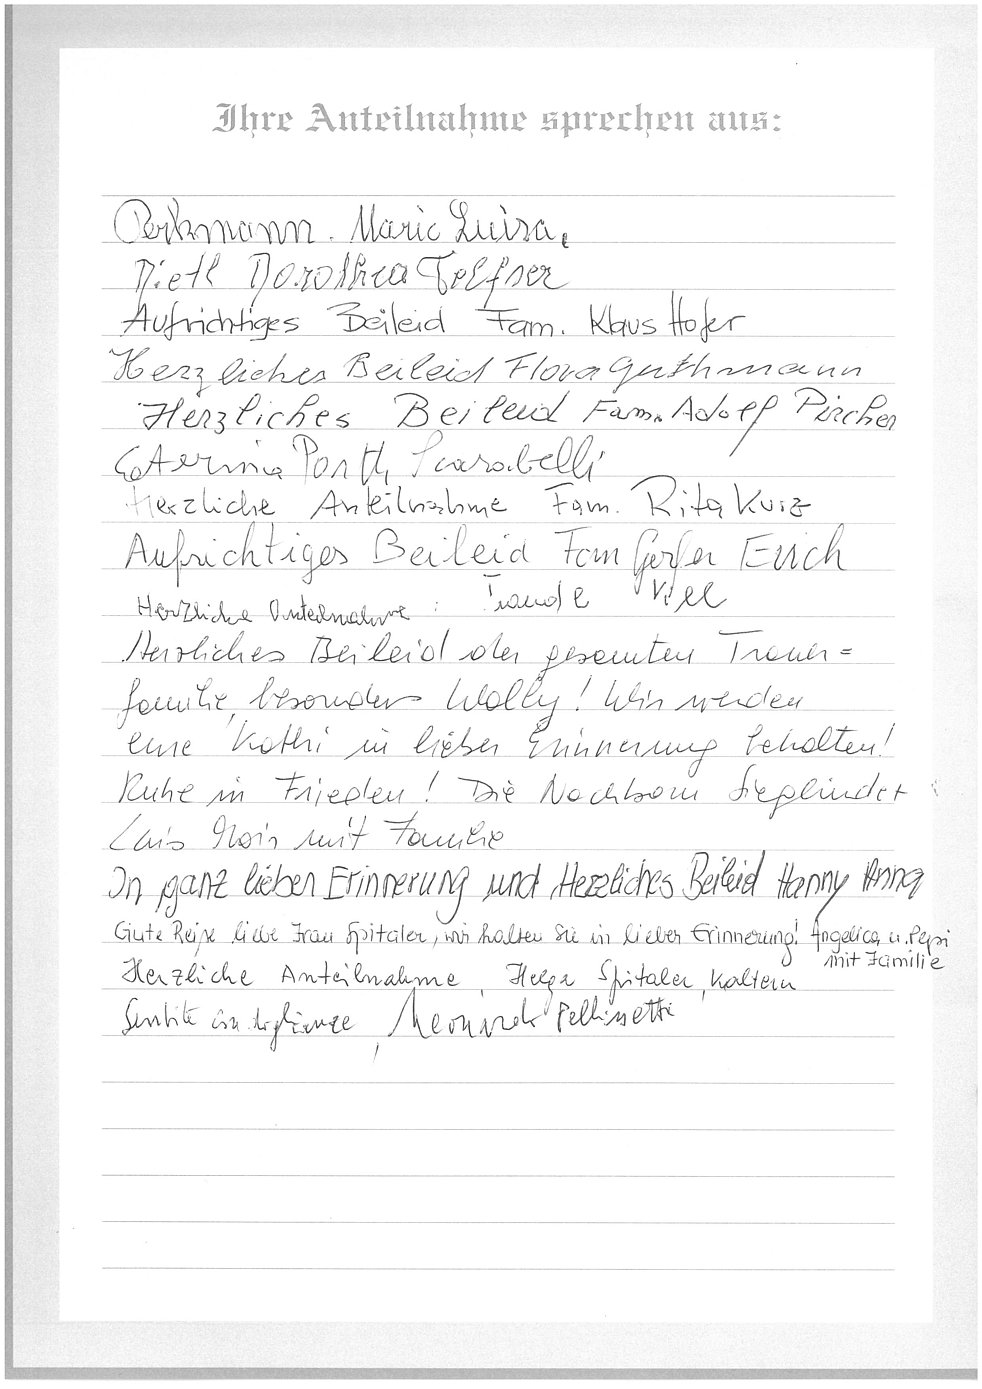 Ihre Anteilnahme sprechen aus:
Perkmann. Marie Luisa.
Dietl Dorothea Telfser
Aufrichtiges Beileid Fam. Klaus Hofer
Herzliches Beileid Flora Guthmann
Herzliches Beileid Fam. Adolf Pircher
Caterina Scarabelli
Herzliche Anteilnahme Fam. Rita Kurz
Aufrichtiges Beileid Fam Erich
Herzliche Anteilnahme : Traudl
Herzliches Beileid der gesamten Trauer=
familie, besonders Wally! Wir werden
eine Kathi in lieber Erinnerung behalten!
Ruhe in Frieden! Die Nachbarn Sieglinde +
Luis Mair mit Familie
In ganz lieber Erinnerung und Herzliches Beileid Hanny Anna
Gute Reise liebe Frau Spitaler, wir halten Sie in lieber Erinnerung! Angelica u. Pepi
mit Familie
Herzliche Anteilnahme, Helga Spitaler, Kaltern
Sentite condoglianze,